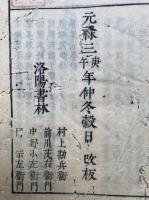 元禄三庚午年仲冬穀日 改板
洛陽書林
村上勘兵衛
前川茂右衛門
中野小左衛門